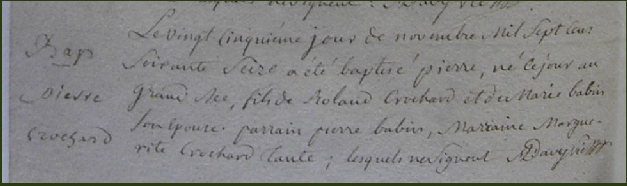 Bap
pierre
Crochard
Le vingt cinquiéme jour de novembre Mil Sept Cens
Soixante Seize a été baptisé pierre, né le jour au
Grand , fils de Roland Crochard et de Marie babin
Son Epouse. parrain pierre babin, Marraine Margue-
rite Crochard tante ; lesquels ne signent